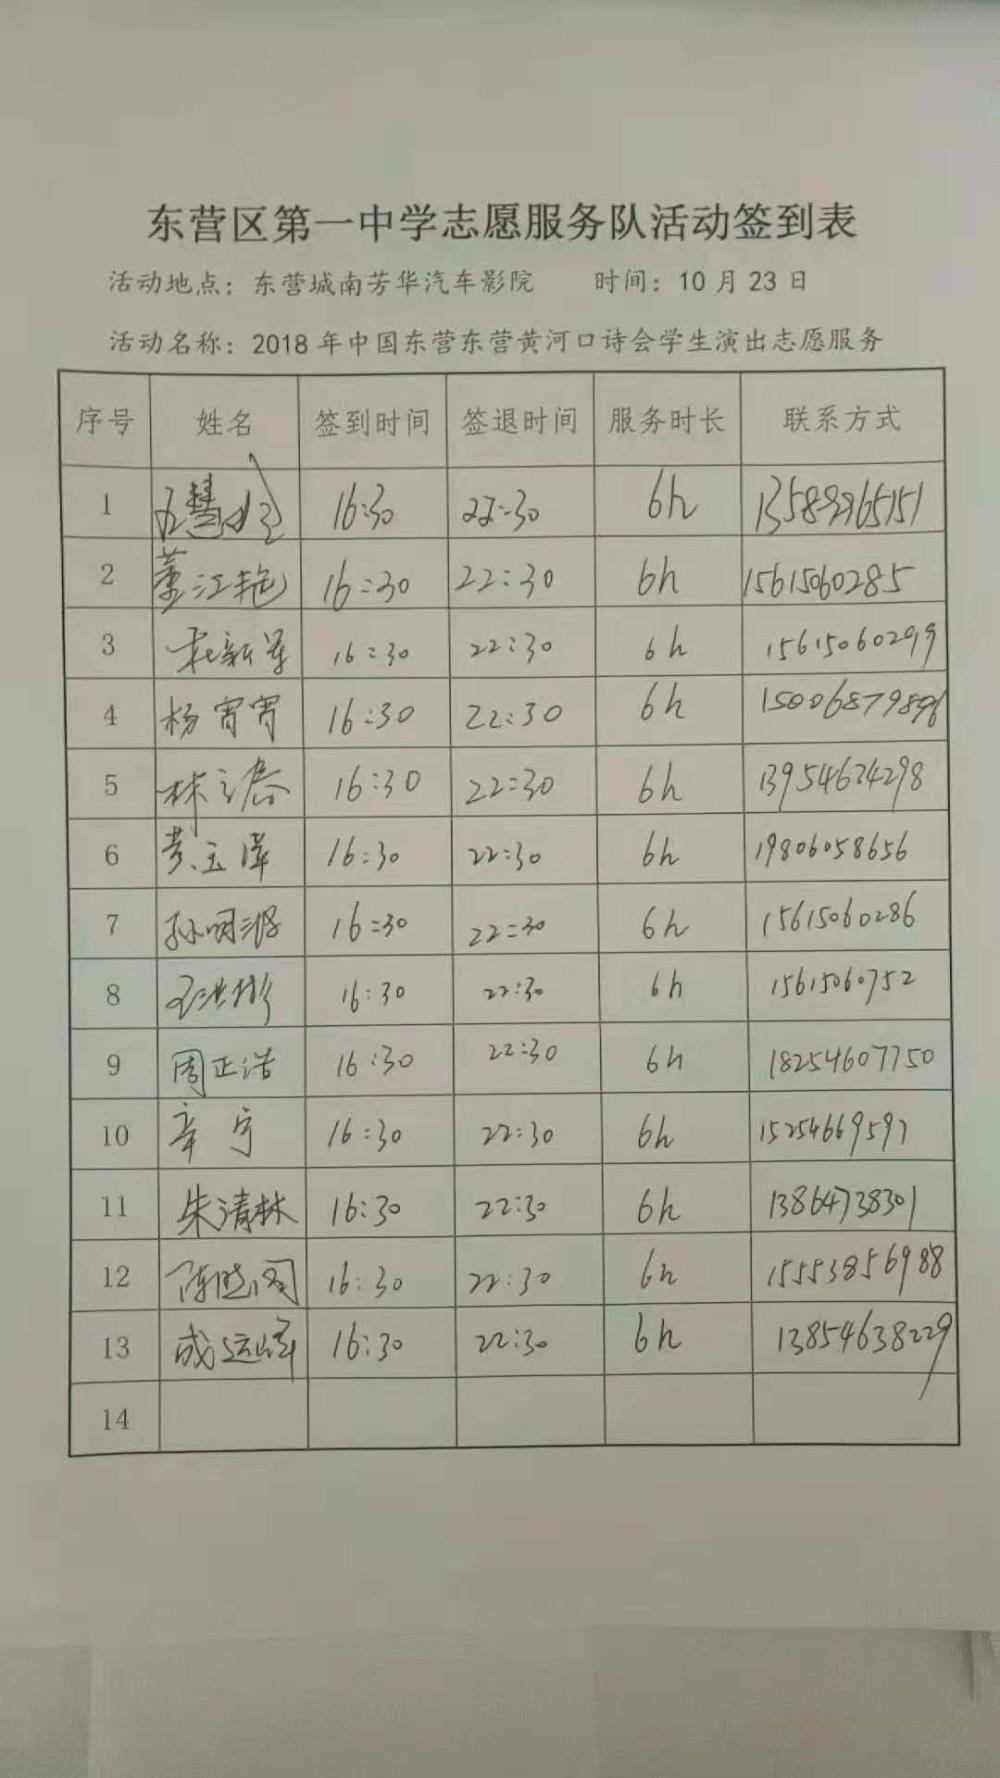 东营区第一中学志愿服务队活动签到表
活动地点：东营城南芳华汽车影院 时间：10月23日
活动名称：2018年中国东营东营黄河口诗会学生演出志愿服务
序号 姓名 签到时间 签退时间 服务时长 联系方式
1 16:30 22:30 6h 13589965151
2 董江艳 16:30 22:30 6h 15615060285
3 16:30 22:30 6h 15615060299
4 杨宵宵 16:30 22:30 6h
5 林 16:30 22:30 6h 13954624298
6 黄玉萍 16:30 22:30 6h 19806058656
7 孙明 16:30 22:30 6h 15615060286
8 王洪彬 16:30 22:30 6h 15615060752
9 周正浩 16:30 22:30 6h 18254607750
10 辛宁 16:30 22:30 6h 15254669597
11 朱清林 16:30 22:30 6h 13864738301
12 陈 16:30 22:30 6h 15553856988
13 成运峰 16:30 22:30 6h 13854638229
14